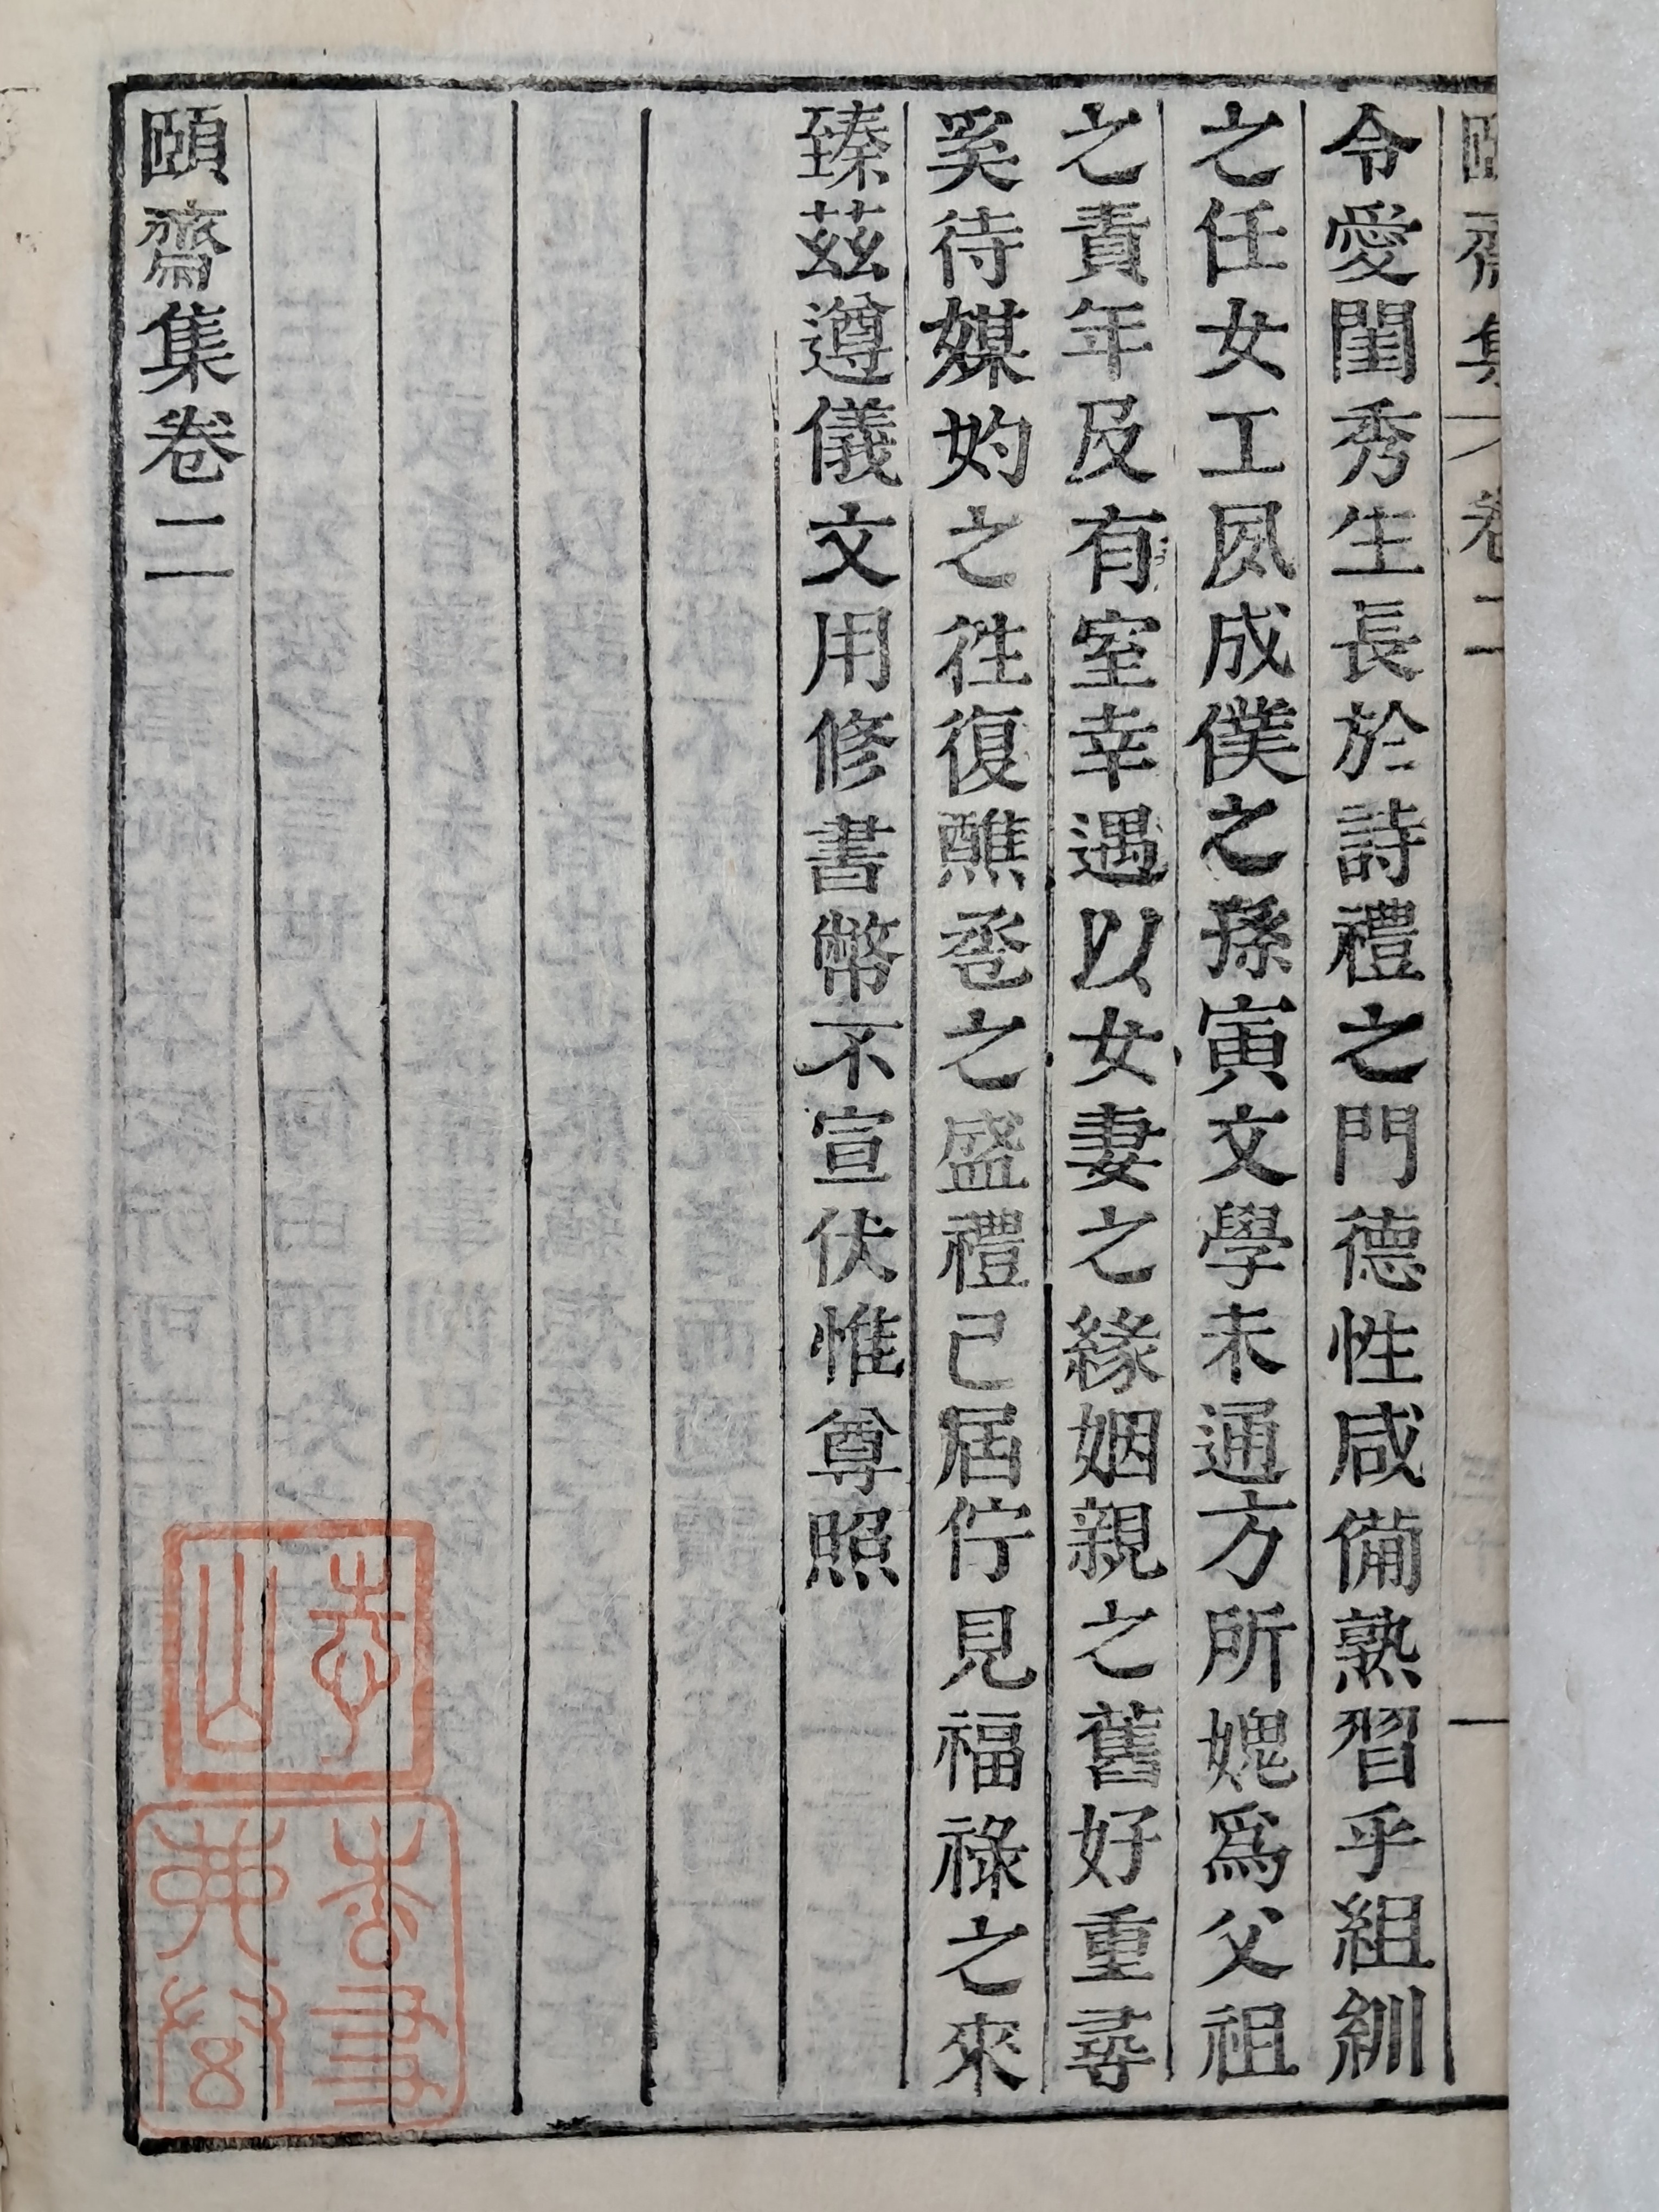 頤齋集 卷二
令愛閨秀生長於詩禮之門德性咸備熟習乎組紃
之任女工夙成僕之孫寅文學未通方所媿爲父祖
之責年及有室幸遇以女妻之緣姻親之舊好重尋
奚待媒妁之徃復醮卺之盛禮已届佇見福祿之來
臻茲遵儀文用修書幣不宣伏惟尊照
頤齋集卷二